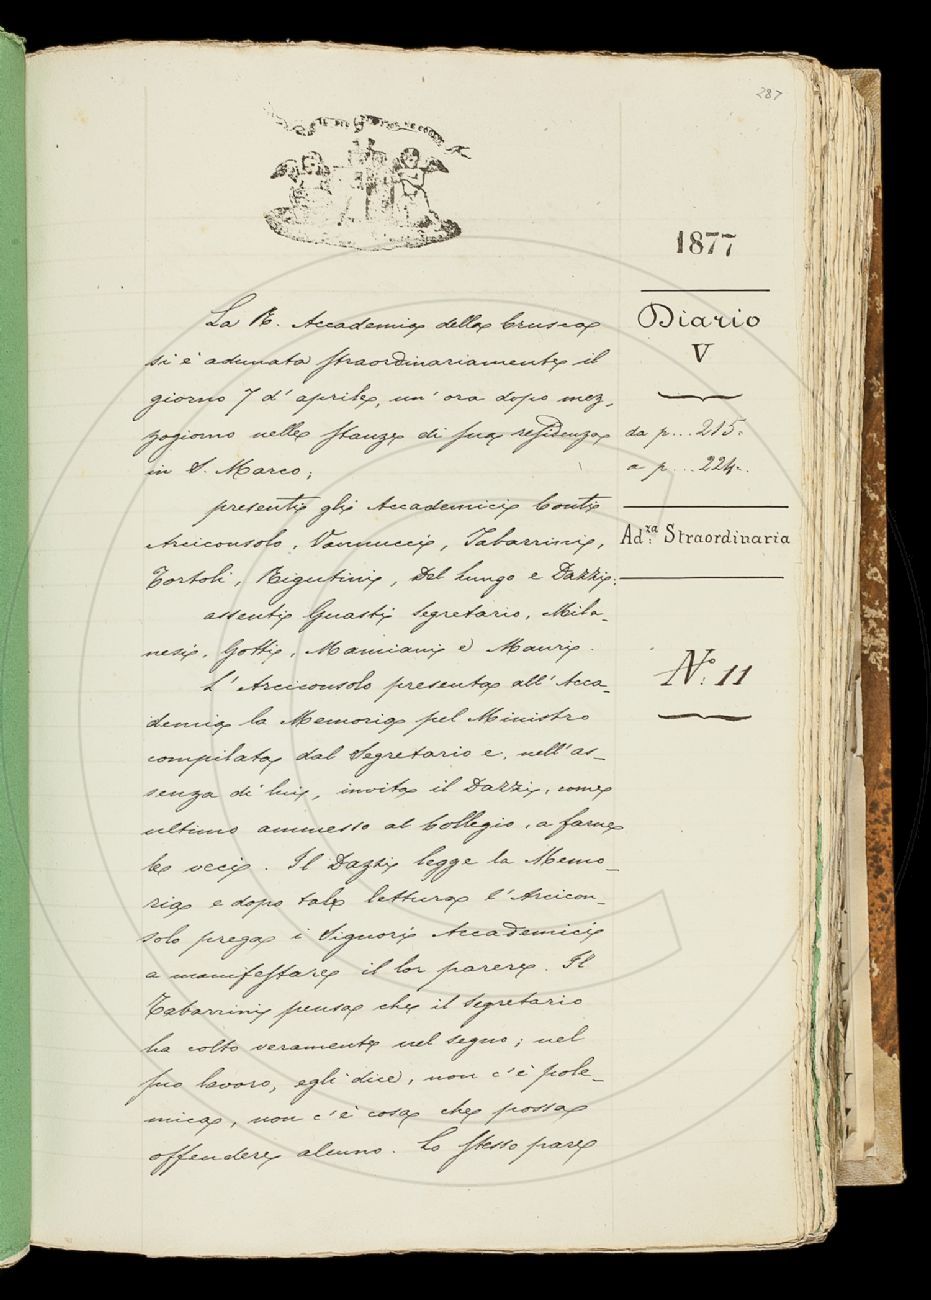 287
1877
Diario
V
da p... 215.
a p.... 224.
Ad.za Straordinaria
N.o 11
La R. Accademia della Crusca
si è adunata straordinariamente il
giorno 7 d'aprile, un'ora dopo mez,
zogiorno nelle stanze di sua residenza
in S. Marco;
presenti gli Accademici Conti
Arciconsolo, Vannucci, Tabarrini,
Tortoli, Rigutini, Del Lungo e Dazzi:
assenti Guasti Segretario, Mila-
nesi, Gotti, Mamiani e Mauri.
L'Arciconsolo presenta all'Acca-
demia la Memoria pel Ministro
compilata dal Segretario e, nell'as-
senza di lui, invita il Dazzi, come
ultimo ammesso al Collegio, a farne
le veci. Il Dazzi legge la Memo-
ria e dopo tale lettura l'Arcicon-
solo prega i Signori Accademici
a manifestare il lor parere. Il
Tabarrini pensa che il Segretario
ha colto veramente nel segno; nel
suo lavoro, egli dice, non c'è pole-
mica, non c'è cosa che possa
offendere alcuno. Lo stesso pare